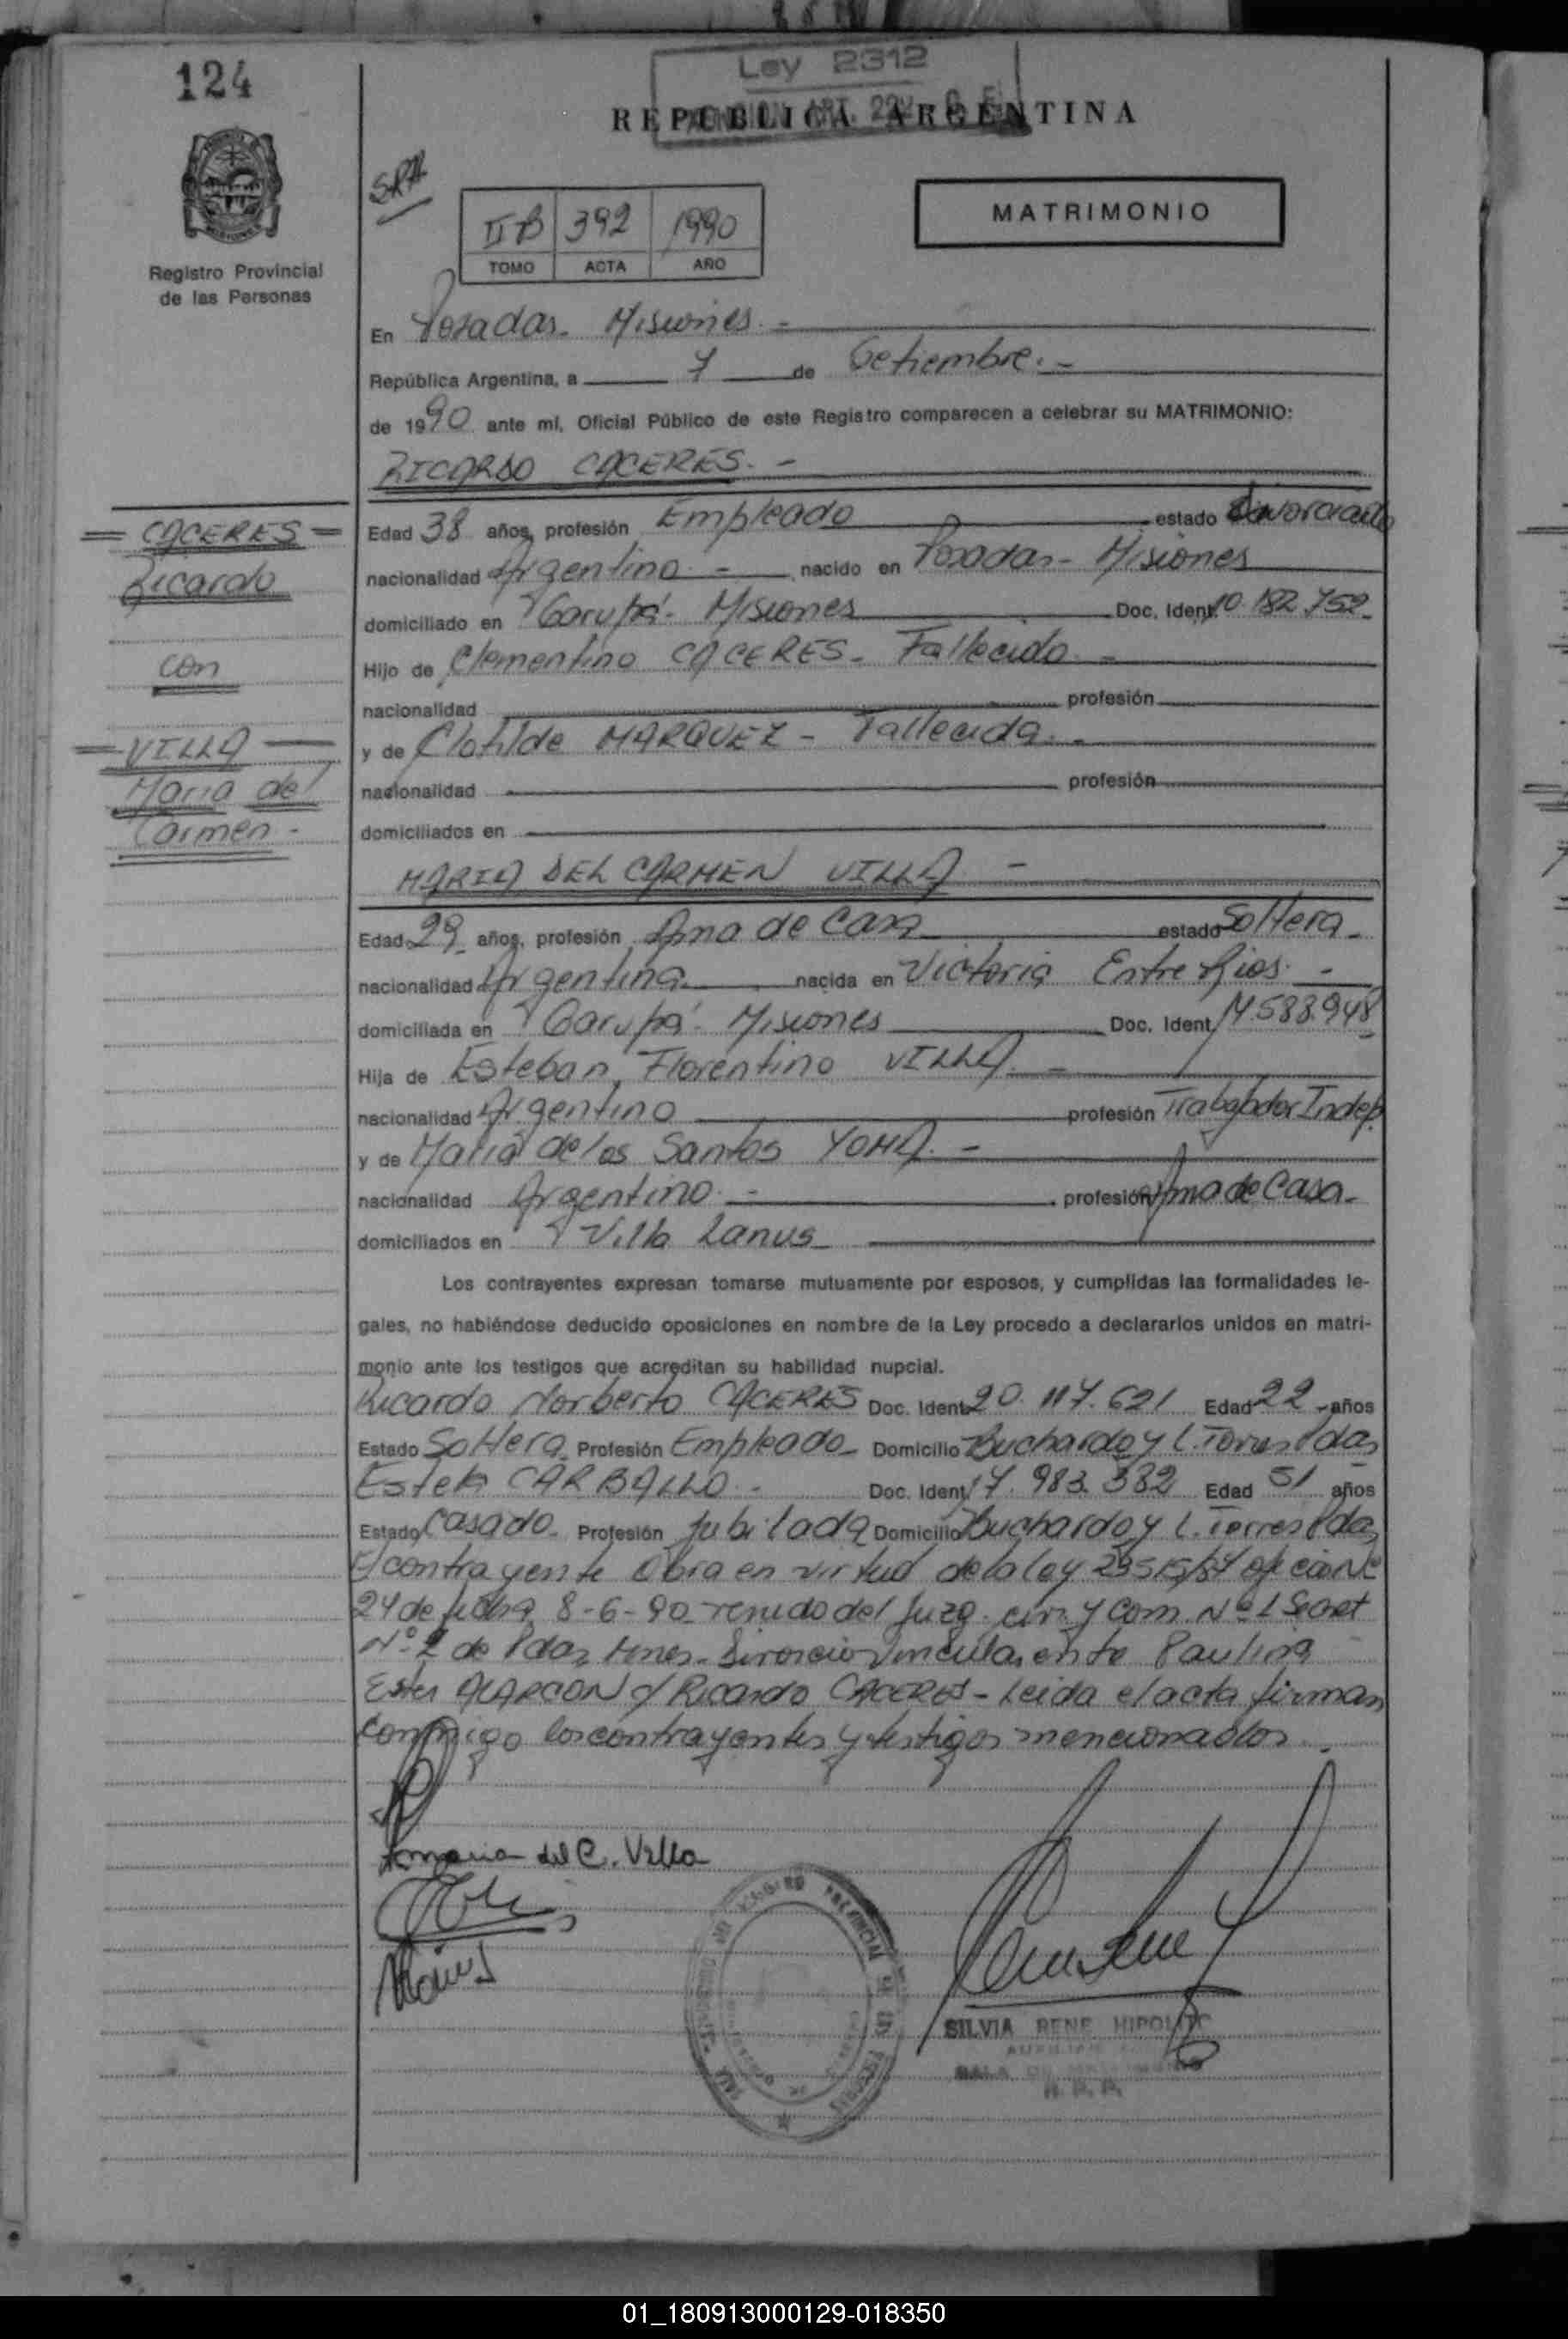 124
Ley 2312
REPUBLICA ARGENTINA
SRA
MATRIMONIO
II B 392 1990
TOMO ACTA AÑO
Registro Provincial
de las Personas
En Posadas - Misiones. -
República Argentina, a 7 de Setiembre. -
de 1990 ante mí, Oficial Público de este Registro comparecen a celebrar su MATRIMONIO:
RICARDO CACERES. -
= CACERES =
Ricardo
con
= VILLA =
Maria del
Carmen -
Edad 38 años, profesión Empleado estado divorciado
nacionalidad Argentino - nacido en Posadas - Misiones
domiciliado en Garupá - Misiones Doc. Ident. 10.182.752
Hijo de Clementino CACERES - Fallecido. -
nacionalidad profesión
y de Clotilde MARQUEZ - Fallecida. -
nacionalidad profesión
domiciliados en
MARIA DEL CARMEN VILLA -
Edad 29 años, profesión Ama de Casa estado Soltera -
nacionalidad Argentina nacida en Victoria Entre Rios. -
domiciliada en Garupá - Misiones Doc. Ident. 14.588.948
Hija de Esteban, Florentino VILLA. -
nacionalidad Argentino profesión Trabajador Indep.
y de Maria de los Santos YOMA. -
nacionalidad Argentino. - profesión Ama de Casa -
domiciliados en Villa Lanus
Los contrayentes expresan tomarse mutuamente por esposos, y cumplidas las formalidades le-
gales, no habiéndose deducido oposiciones en nombre de la Ley procedo a declararlos unidos en matri-
monio ante los testigos que acreditan su habilidad nupcial.
Ricardo Norberto CACERES Doc. Ident. 20.117.621 Edad 22 años
Estado Soltero Profesión Empleado - Domicilio Buchardo y L. Torres Pdas
Estela CARBALLO - Doc. Ident. 7.983.382 Edad 51 años
Estado Casado - Profesión Jubilada Domicilio Buchardo y L. Torres Pdas
El contrayente Obra en virtud de la ley 23515/87 Nº
24 de fecha 8-6-90 - del Juzg. civ. y Com. Nº 1 Secret
Nº 2 de Pdas Mnes - Divorcio Vincular Paulina
Ester ALARCON c/ Ricardo CACERES - Leida el acta firman
conmigo los contrayentes y testigos mencionados
maria del C. Villa
SILVIA RENE HIPOLITO
R. P. P.
01_180913000129-018350